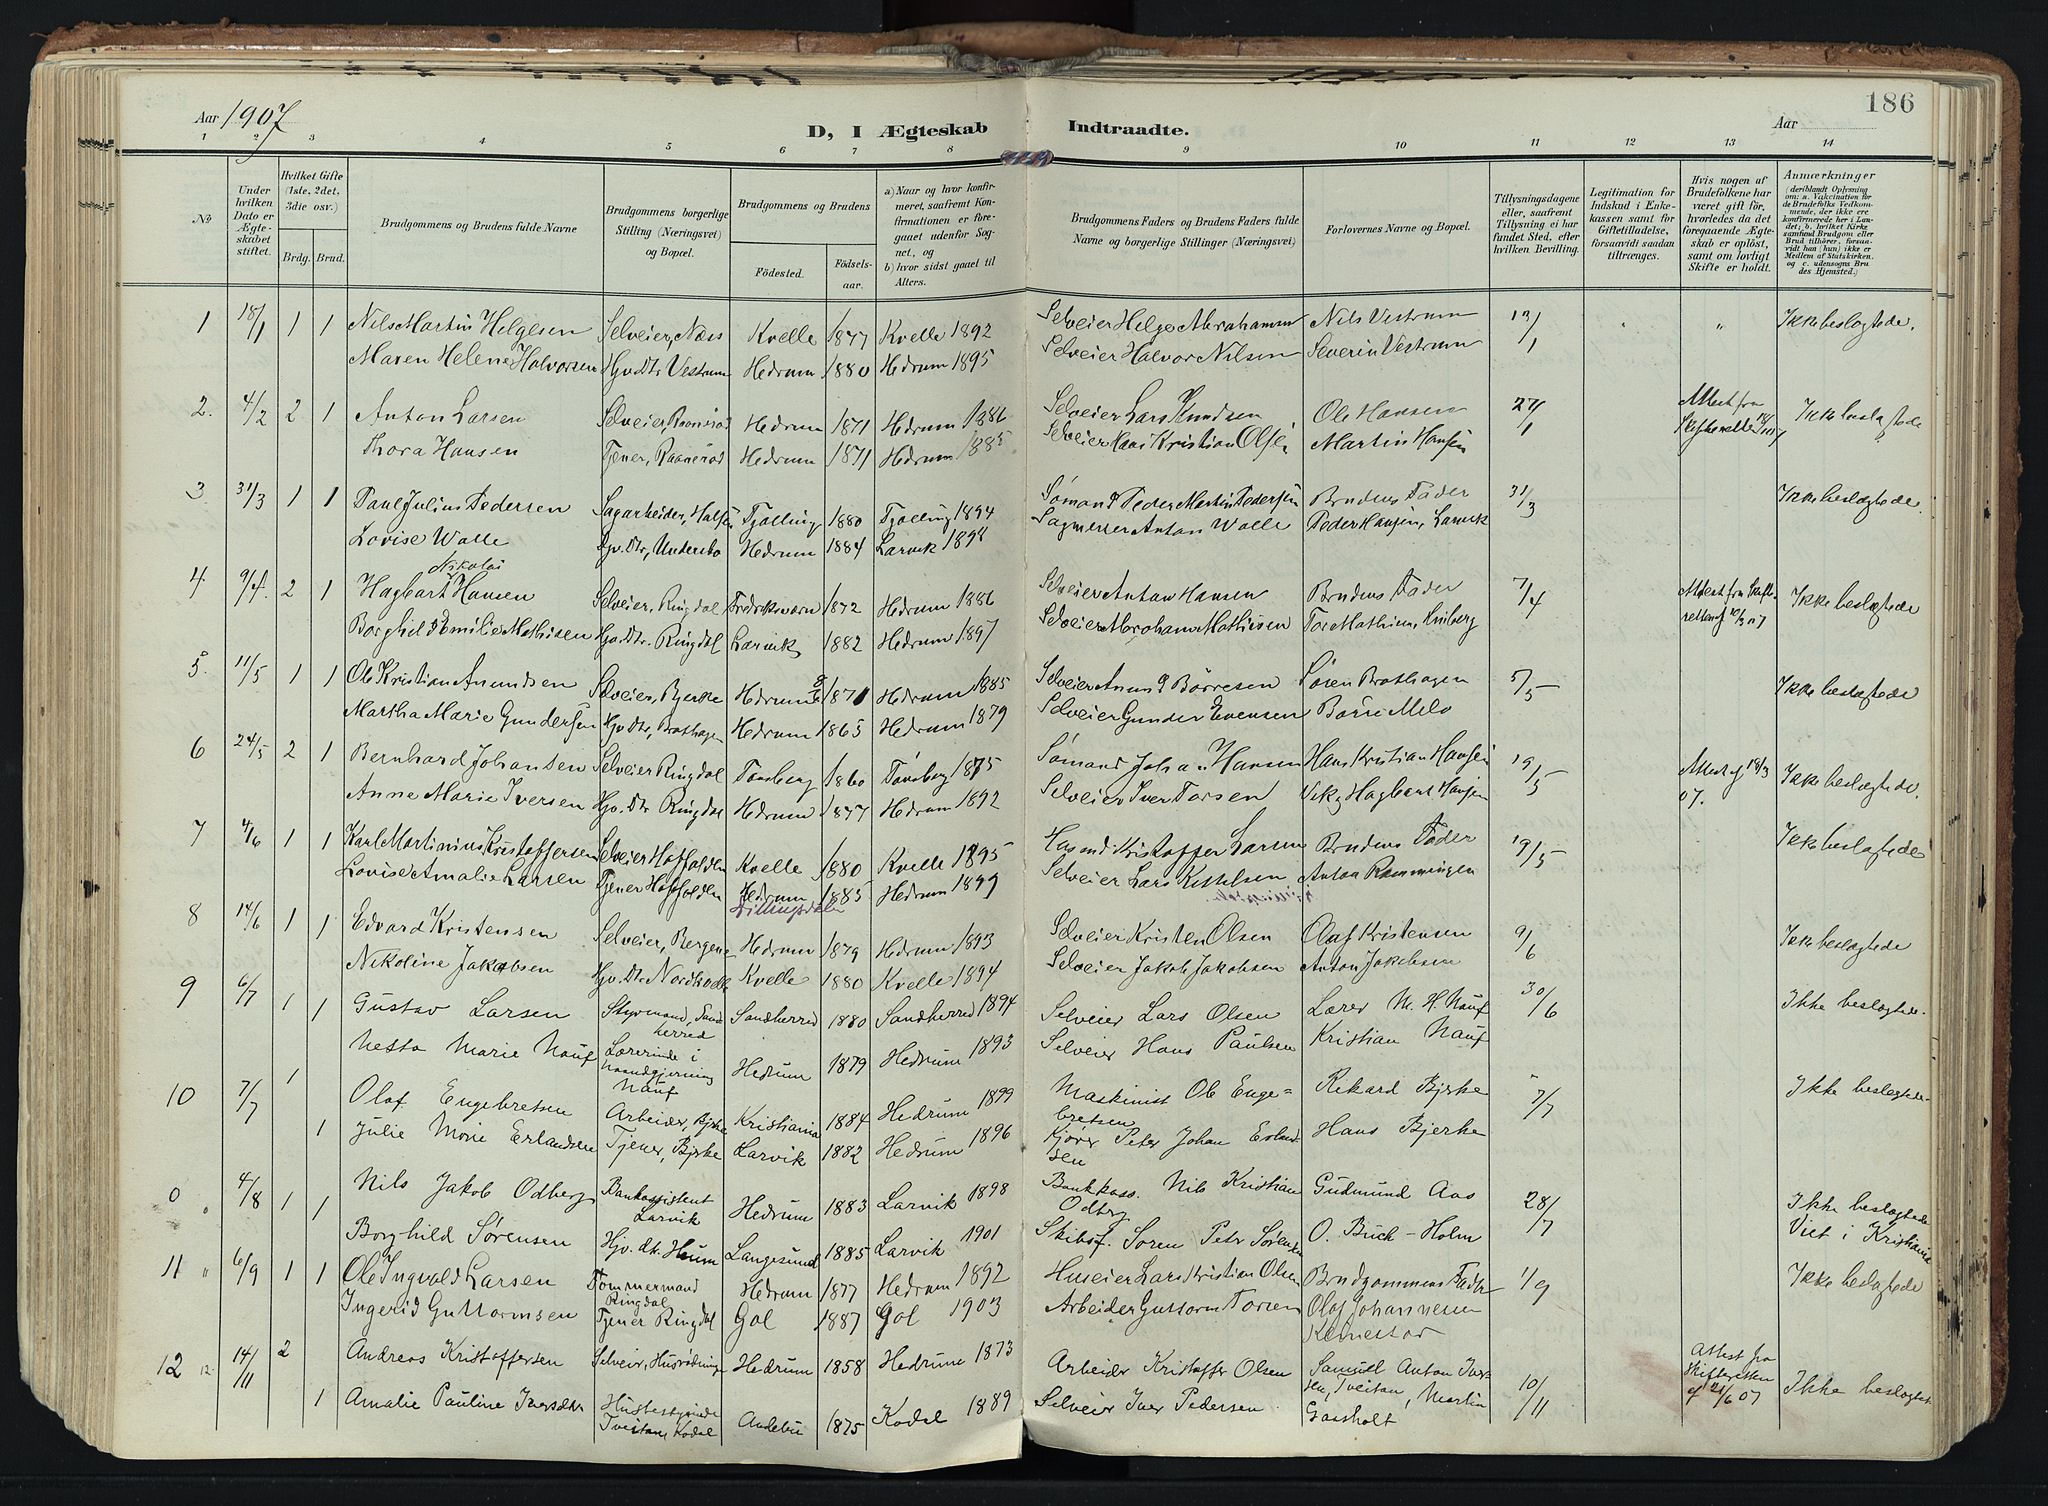 186
Aar 1907
D, I Ægteskab Indtraadte.
Aar
1 2 3 4 5 6 7 8 9 10 11 12 13 14
No
Under hvilken Dato er Ægteskabet stiftet.
Hvilket Gifte (1ste, 2det, 3die osv.)
Brdg. Brud.
Brudgommens og Brudens fulde Navne
Brudgommens borgerlige Stilling (Næringsvei) og Bopæl.
Brudgommens og Brudens
Födested.
Födselsaar.
a) Naar og hvor konfirmeret, saafremt Konfirmationen er foregaaet udenfor Sognet, og
b) hvor sidst gaaet til Alters.
Brudgommens Faders og Brudens Faders fulde Navne og borgerlige Stillinger (Næringsvei)
Forlovernes Navne og Bopæl.
Tillysningsdagene eller, saafremt Tillysning ei har fundet Sted, efter hvilken Bevilling.
Legitimation for Indskud i Enkekassen samt for Giftetilladelse, forsaavidt saadan tiltrænges.
Hvis nogen af Brudefolkene har været gift för, hvorledes da det foregaaende Ægteskab er oplöst, samt om lovligt Skifte er holdt.
Anmærkninger (deriblandt Oplysning om: a. Vakcination for de Brudefolks Vedkommende, der ikke ere konfirmerede her i Landet; b. hvilket Kirkesamfund Brudgom eller Brud tilhörer, forsaavidt han (hun) ikke er Medlem af Statskirken, og c. udensogns Brudes Hjemsted.)
1 18/1 1 1 Nils Martin Helgesen Selveier, Næss Kvelle 1877 Kvelle 1892 Selveier Helge Abrahamsen Nils Vestrum 13/1 " " Ikke beslægtede.
Maren Helene Halvorsen Hjv. Dtr Vestrum Hedrum 1880 Hedrum 1895 Selveier Halvor Nilsen Severin Vestrum
2. 4/2 2 1 Anton Larsen Selveier, Hedrum 1871 Hedrum 1886 Selveier Lars Knudsen Ole Hansen 27/1 Attest fra Skifteretten Ikke beslægtede
Thora Hansen Tjener, Hedrum 1871 Hedrum 1885 Selveier Hans Kristian Olsen Martin Hansen
3 31/3 1 1 Paul Julius Pedersen Sagarbeider, Tjølling 1880 Tjølling 1894 Sømand Peder Martin Pedersen Brudens Fader 31/3 Ikke beslægtede.
Lovise Walle Hjv. Dtr, Undersbo Hedrum 1884 Larvik 1898 Sagmester Anton Walle Peder Hansen, Larvik
Nikolai
4. 9/4. 2 1 Hagbart Hansen Selveier, Ringdal Fredriksværn 1872 Hedrum 1886 Selveier Anton Hansen Brudens Fader 7/4 Attest fra Skifteretten af 10/3 07 Ikke beslægtede
Borghild Emilie Mathisen Hjv. Dtr. Ringdal Larvik 1882 Hedrum 1897 Selveier Abraham Mathisen Tor Mathisen,
5. 11/5 1 1 Ole Kristian Amundsen Selveier, Bjerke Hedrum 1871 Hedrum 1885 Selveier Amund Börresen Sören Brathagen 5/5 Ikke beslægtede
Martha Marie Gundersen Hjv. Dtr, Brathagen Hedrum 1865 Hedrum 1879 Selveier Gunder Evensen Börre Melø
6 24/5 2 1 Bernhard Johansen Selveier Ringdal Tønsberg 1860 Tønsberg 1875 Sømand Johan Hansen Hans Kristian Hansen 19/5 Attest af 18/3 07. Ikke beslægtede.
Anne Marie Iversen Hjv. Dtr Ringdal Hedrum 1877 Hedrum 1892 Selveier Iver Torsen Hagbart Hansen
7 4/6 1 1 Karl Martinius Kristoffersen Selveier Kvelle 1880 Kvelle 1895 Husmd Kristoffer Larsen Brudens Fader 19/5 Ikke beslægtede
Lovise Amalie Larsen Tjener Hedrum 1885 Hedrum 1899 Selveier Lars Kittelsen Anton Rømmingen
8 14/6 1 1 Edvard Kristensen Selveier, Bergene Hedrum 1879 Hedrum 1893 Selveier Kristen Olsen Olaf Kristensen 9/6 Ikke beslægtede
Nikoline Jakobsen Hjv. Dtr. Kvelle 1880 Kvelle 1894 Selveier Jakob Jakobsen Anton Jakobsen
9 6/7 1 1 Gustav Larsen Styrmand, Sandherred Sandherred 1880 Sandherred 1894 Selveier Lars Olsen Lærer M. H. Nauf 30/6 Ikke beslægtede.
Nesta Marie Nauf Lærerinde i Haandgjerning Nauf Hedrum 1879 Hedrum 1893 Selveier Hans Paulsen Kristian Nauf
10 7/7 1 Olaf Engebretsen Arbeider, Bjrke Kristiania 1884 Hedrum 1899 Maskinist Ole Engebretsen Rikard Bjerke 7/7 Ikke beslægtede.
1 Julie Marie Erlandsen Tjener, Bjrke Larvik 1882 Hedrum 1896 Kjører Peter Johan Erlandsen Hans Bjerke
0 4/8 1 1 Nils Jakob Odberg Bankassistent Larvik Hedrum 1883 Larvik 1898 Bankkass. Nils Kristian Odberg Gudmund Aas 28/7 Ikke beslægtede
Borghild Sørensen Hjv. dt. Langesund 1885 Larvik 1901 Skibsf. Søren Petr Sørensen O. Buch-Holm Viet i Kristiania
11 " 6/9 1 1 Ole Ingvald Larsen Tømmermand Ringdal Hedrum 1877 Hedrum 1892 Huseier Lars Kristian Olsen Brudgommens Fader 1/9 Ikke beslægtede
Ingerid Guttormsen Tjener Ringdal Gol 1887 Gol 1903 Arbeider Guttorm Torsen Olaf Johannesen
12 12. 14/11 2 Andreas Kristoffersen Selveier, Hedrum 1858 Hedrum 1873 Arbeider Kristoffer Olsen Samuel Anton Iversen, Tveitan, Martin Gaasholt 10/11 Attest fra Skifteretten af 21/6 07 Ikke beslægtet.
1 Amalie Pauline Iversdtr Husbestyrinde Tveitan, Kodal Andebu 1875 Kodal 1889 Selveier Iver Pedersen